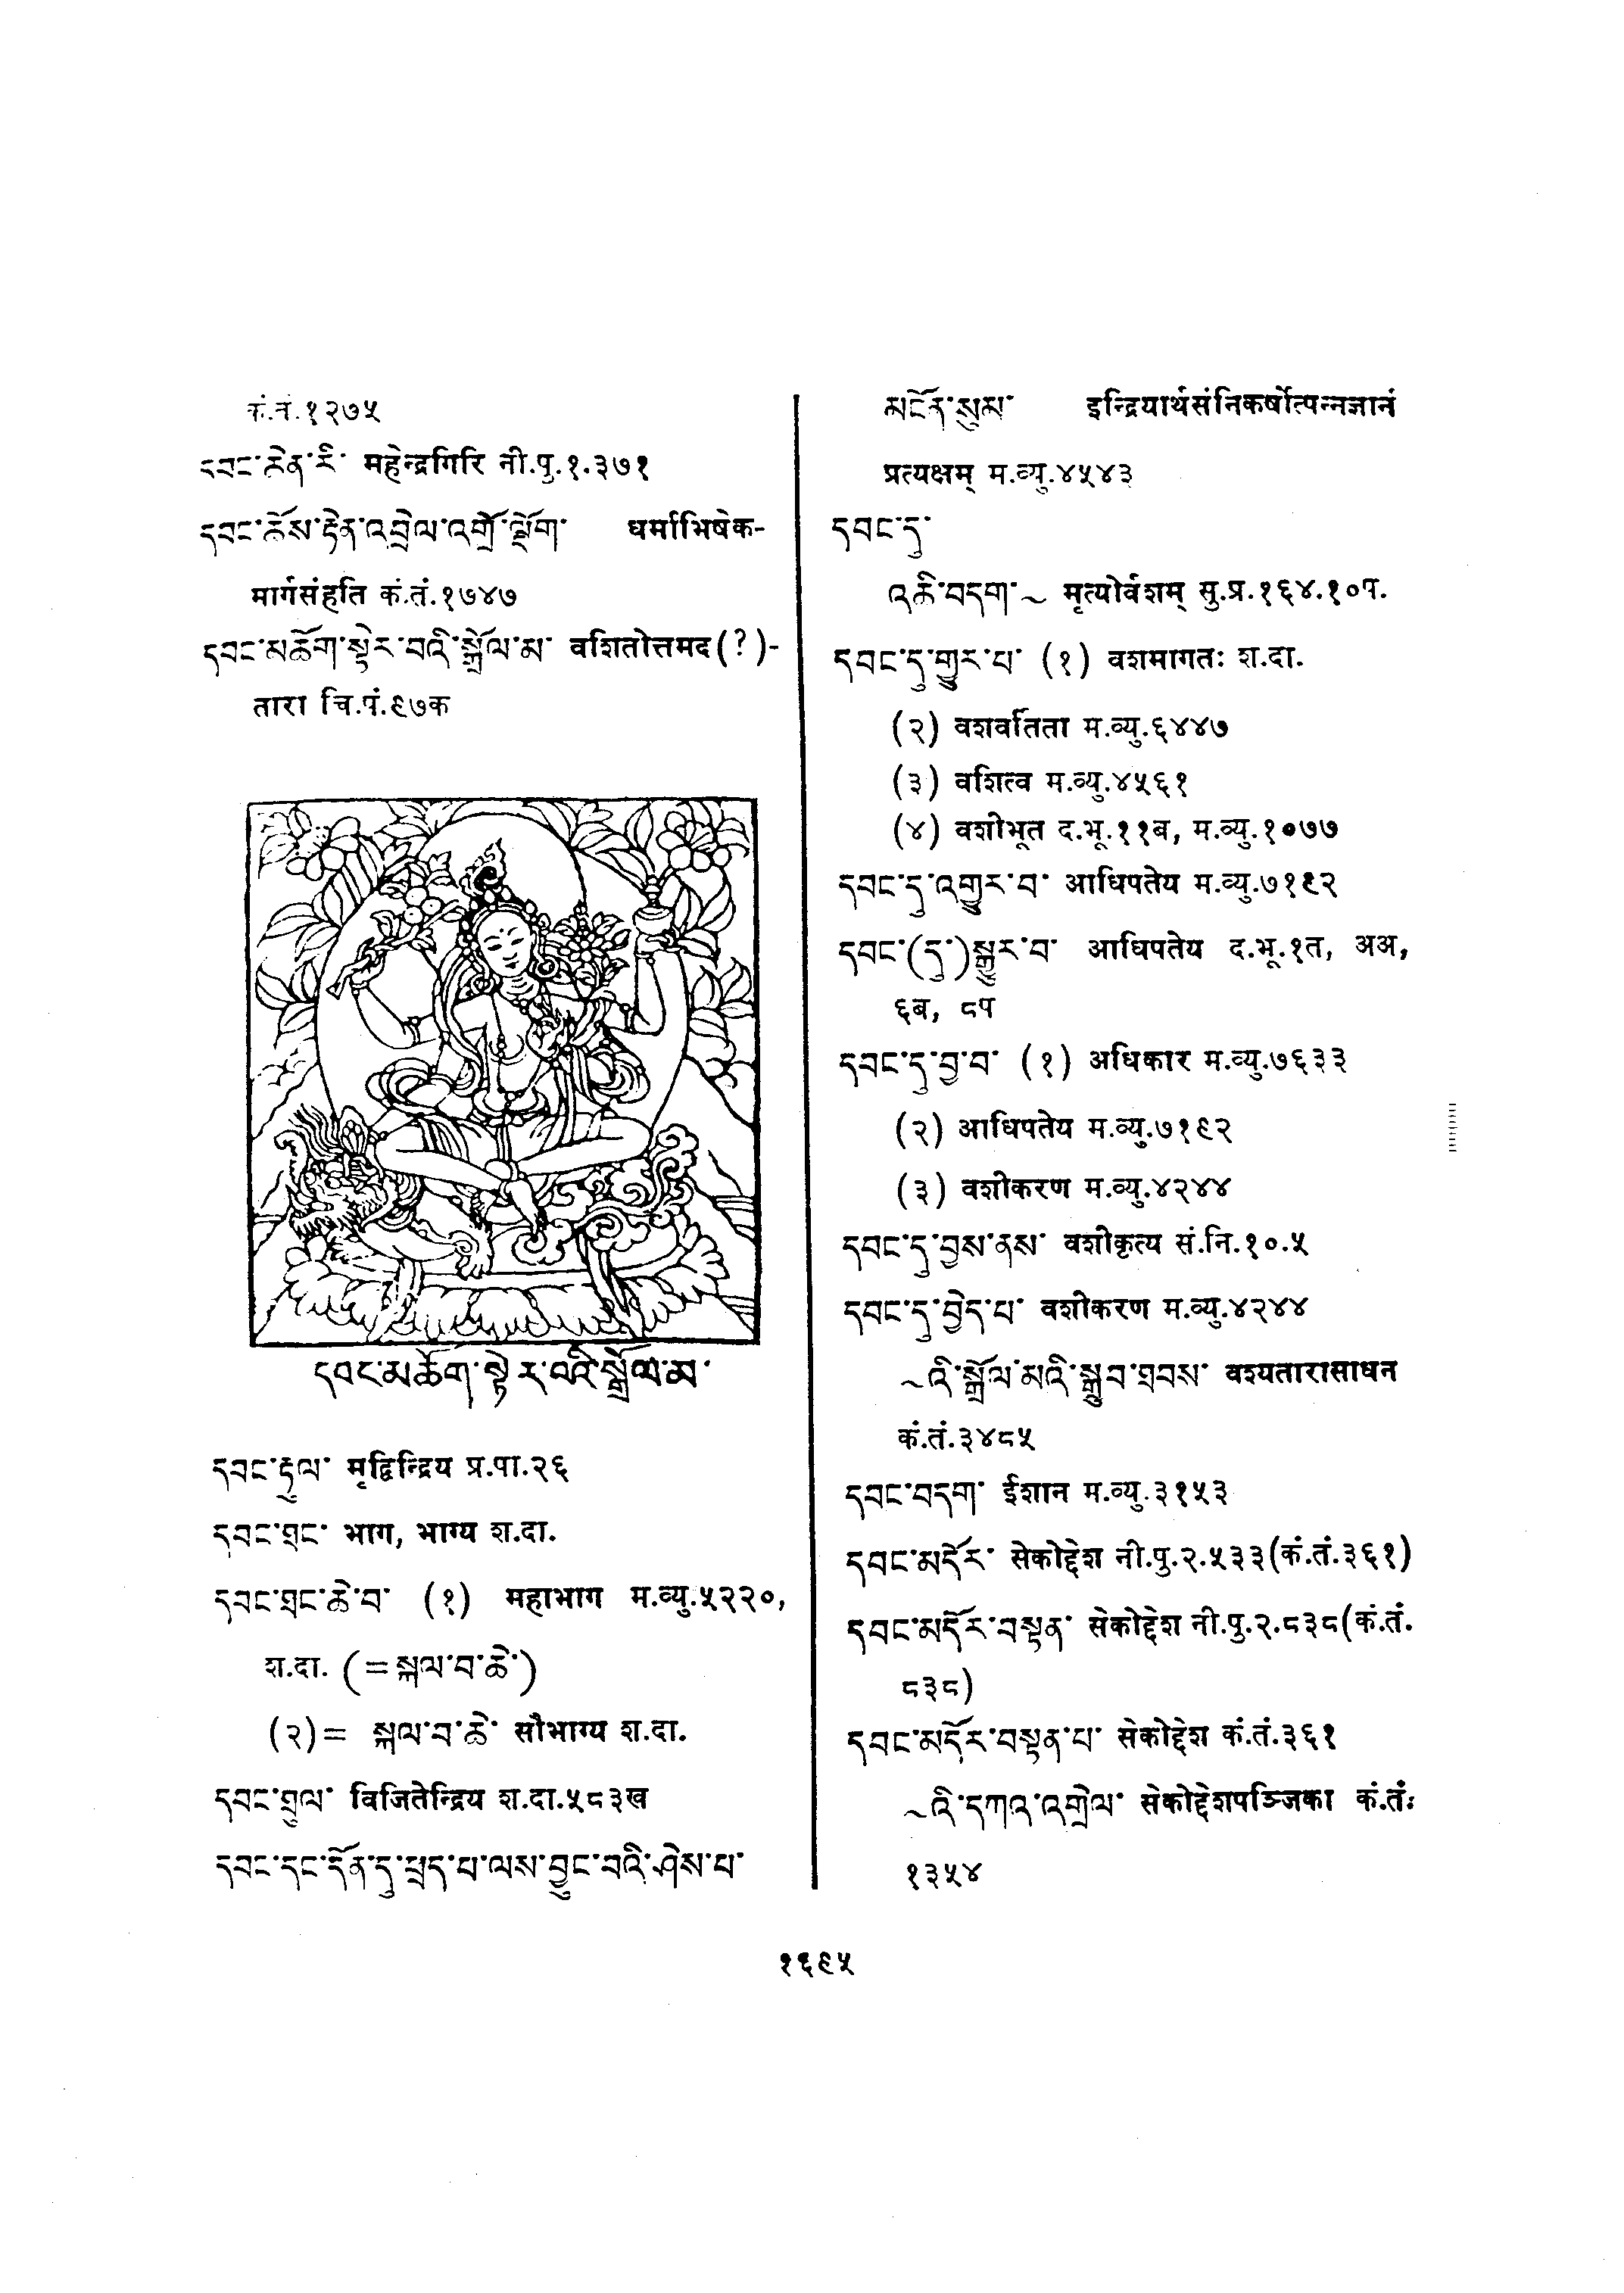 कं.तं.१२७५
དབང་ཆེན་རི་ महेन्द्रगिरि नी.पु.१.३७१
དབང་ཆོས་རྟེན་འབྲེལ་འགྲོ་ལྡོག་ धर्माभिषेक-
मार्गसंहति कं.तं.१७४७
དབང་མཆོག་སྟེར་བའི་སྒྲོལ་མ་ वशितोत्तमद(?)-
तारा चि.पं.९७क
དབང་མཆོག་སྟེར་བའི་སྒྲོལ་མ་
དབང་རྟུལ་ मृद्विन्द्रिय प्र.पा.२६
དབང་ཐང་ भाग, भाग्य श.दा.
དབང་ཐང་ཆེ་བ་ (१) महाभाग म.व्यु.५२२०,
श.दा. (=སྐལ་བ་ཆེ་)
(२)= སྐལ་བ་ཆེ་ सौभाग्य श.दा.
དབང་ཐུལ་ विजितेन्द्रिय श.दा.५८३ख
དབང་དང་དོན་དུ་ཕྲད་པ་ལས་བྱུང་བའི་ཤེས་པ་
མངོན་སུམ་ इन्द्रियार्थसंनिकर्षोत्पन्नज्ञानं
प्रत्यक्षम् म.व्यु.४५४३
དབང་དུ་
འཆི་བདག་~ मृत्योर्वशम् सु.प्र.१६४.१०प.
དབང་དུ་གྱུར་པ་ (१) वशमागतः श.दा.
(२) वशवर्तिता म.व्यु.६४४७
(३) वशित्व म.व्यु.४५६१
(४) वशीभूत द.भू.११ब, म.व्यु.१०७७
དབང་དུ་འགྱུར་བ་ आधिपतेय म.व्यु.७१९२
དབང་(དུ་)སྒྱུར་བ་ आधिपतेय द.भू.१त, अअ,
६ब, ८प
དབང་དུ་བྱ་བ་ (१) अधिकार म.व्यु.७६३३
(२) आधिपतेय म.व्यु.७१९२
(३) वशीकरण म.व्यु.४२४४
དབང་དུ་བྱས་ནས་ वशीकृत्य सं.नि.१०.५
དབང་དུ་བྱེད་པ་ वशीकरण म.व्यु.४२४४
~འི་སྒྲོལ་མའི་སྒྲུབ་ཐབས་ वश्यतारासाधन
कं.तं.३४८५
དབང་བདག་ ईशान म.व्यु.३१५३
དབང་མདོར་ सेकोद्देश नी.पु.२.५३३(कं.तं.३६१)
དབང་མདོར་བསྟན་ सेकोद्देश नी.पु.२.८३८(कं.तं.
८३८)
དབང་མདོར་བསྟན་པ་ सेकोद्देश कं.तं.३६१
~འི་དཀའ་འགྲེལ་ सेकोद्देशपञ्जिका कं.तं.
१३५४
१६९५